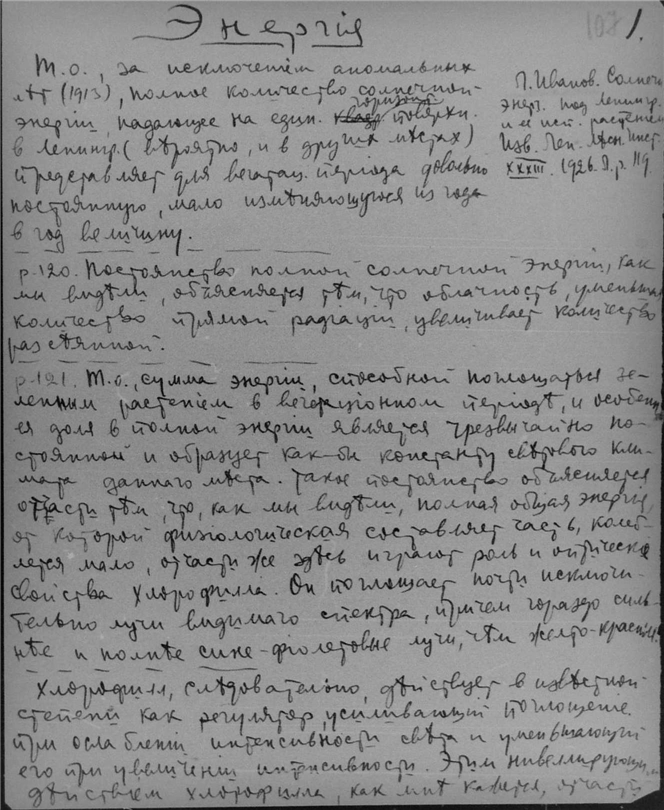 Энергія
107 1.
Т.о., за исключеніем аномальных
лѣт (1913), полное количество солнечной
энергіи, падающее на един. горизонт. поверхн.
в Ленингр. (вѣроятно, и в других мѣстах)
представляет для вегетац. періода довольно
постоянную, мало измѣняющуюся из года
в год величину.
Л. Иванов. Солнечн.
энерг. под Ленингр.
и ея исп. растен
Изв. Лен. Лѣсн. Инст.
XXXIII. 1926. Л. p. 119.
p.120. Постоянство полной солнечной энергіи, как
мы видѣли, объясняется тѣм, что облачность, уменьшая
количество прямой радіаціи, увеличивает количество
разсѣянной.
p.121. Т.о., сумма энергіи, способной поглощаться зе-
леным растеніем в вегетаціонном періодѣ, и особенно
ея доля в полной энергіи является чрезвычайно по-
стоянной и образует как-бы константу свѣтового кли-
мата даннаго мѣста. Такое постоянство объясняется
отчасти тѣм, что, как мы видѣли, полная общая энергія,
от которой физіологическая составляет часть, колеб-
лется мало, отчасти же здѣсь играют роль и оптическія
свойства хлорофилла. Он поглощает почти исключи-
тельно лучи видимаго спектра, причем гораздо силь-
нѣе и полнѣе сине-фіолетовые лучи, чѣм желто-красные.
Хлорофилл, слѣдовательно, дѣйствует в извѣстной
степени как регулятор, усиливающій поглощеніе
при ослабленіи интенсивности свѣта и уменьшающій
его при увеличеніи интенсивности. Этим нивеллирующим
дѣйствіем хлорофилла, как мнѣ кажется, отчасти